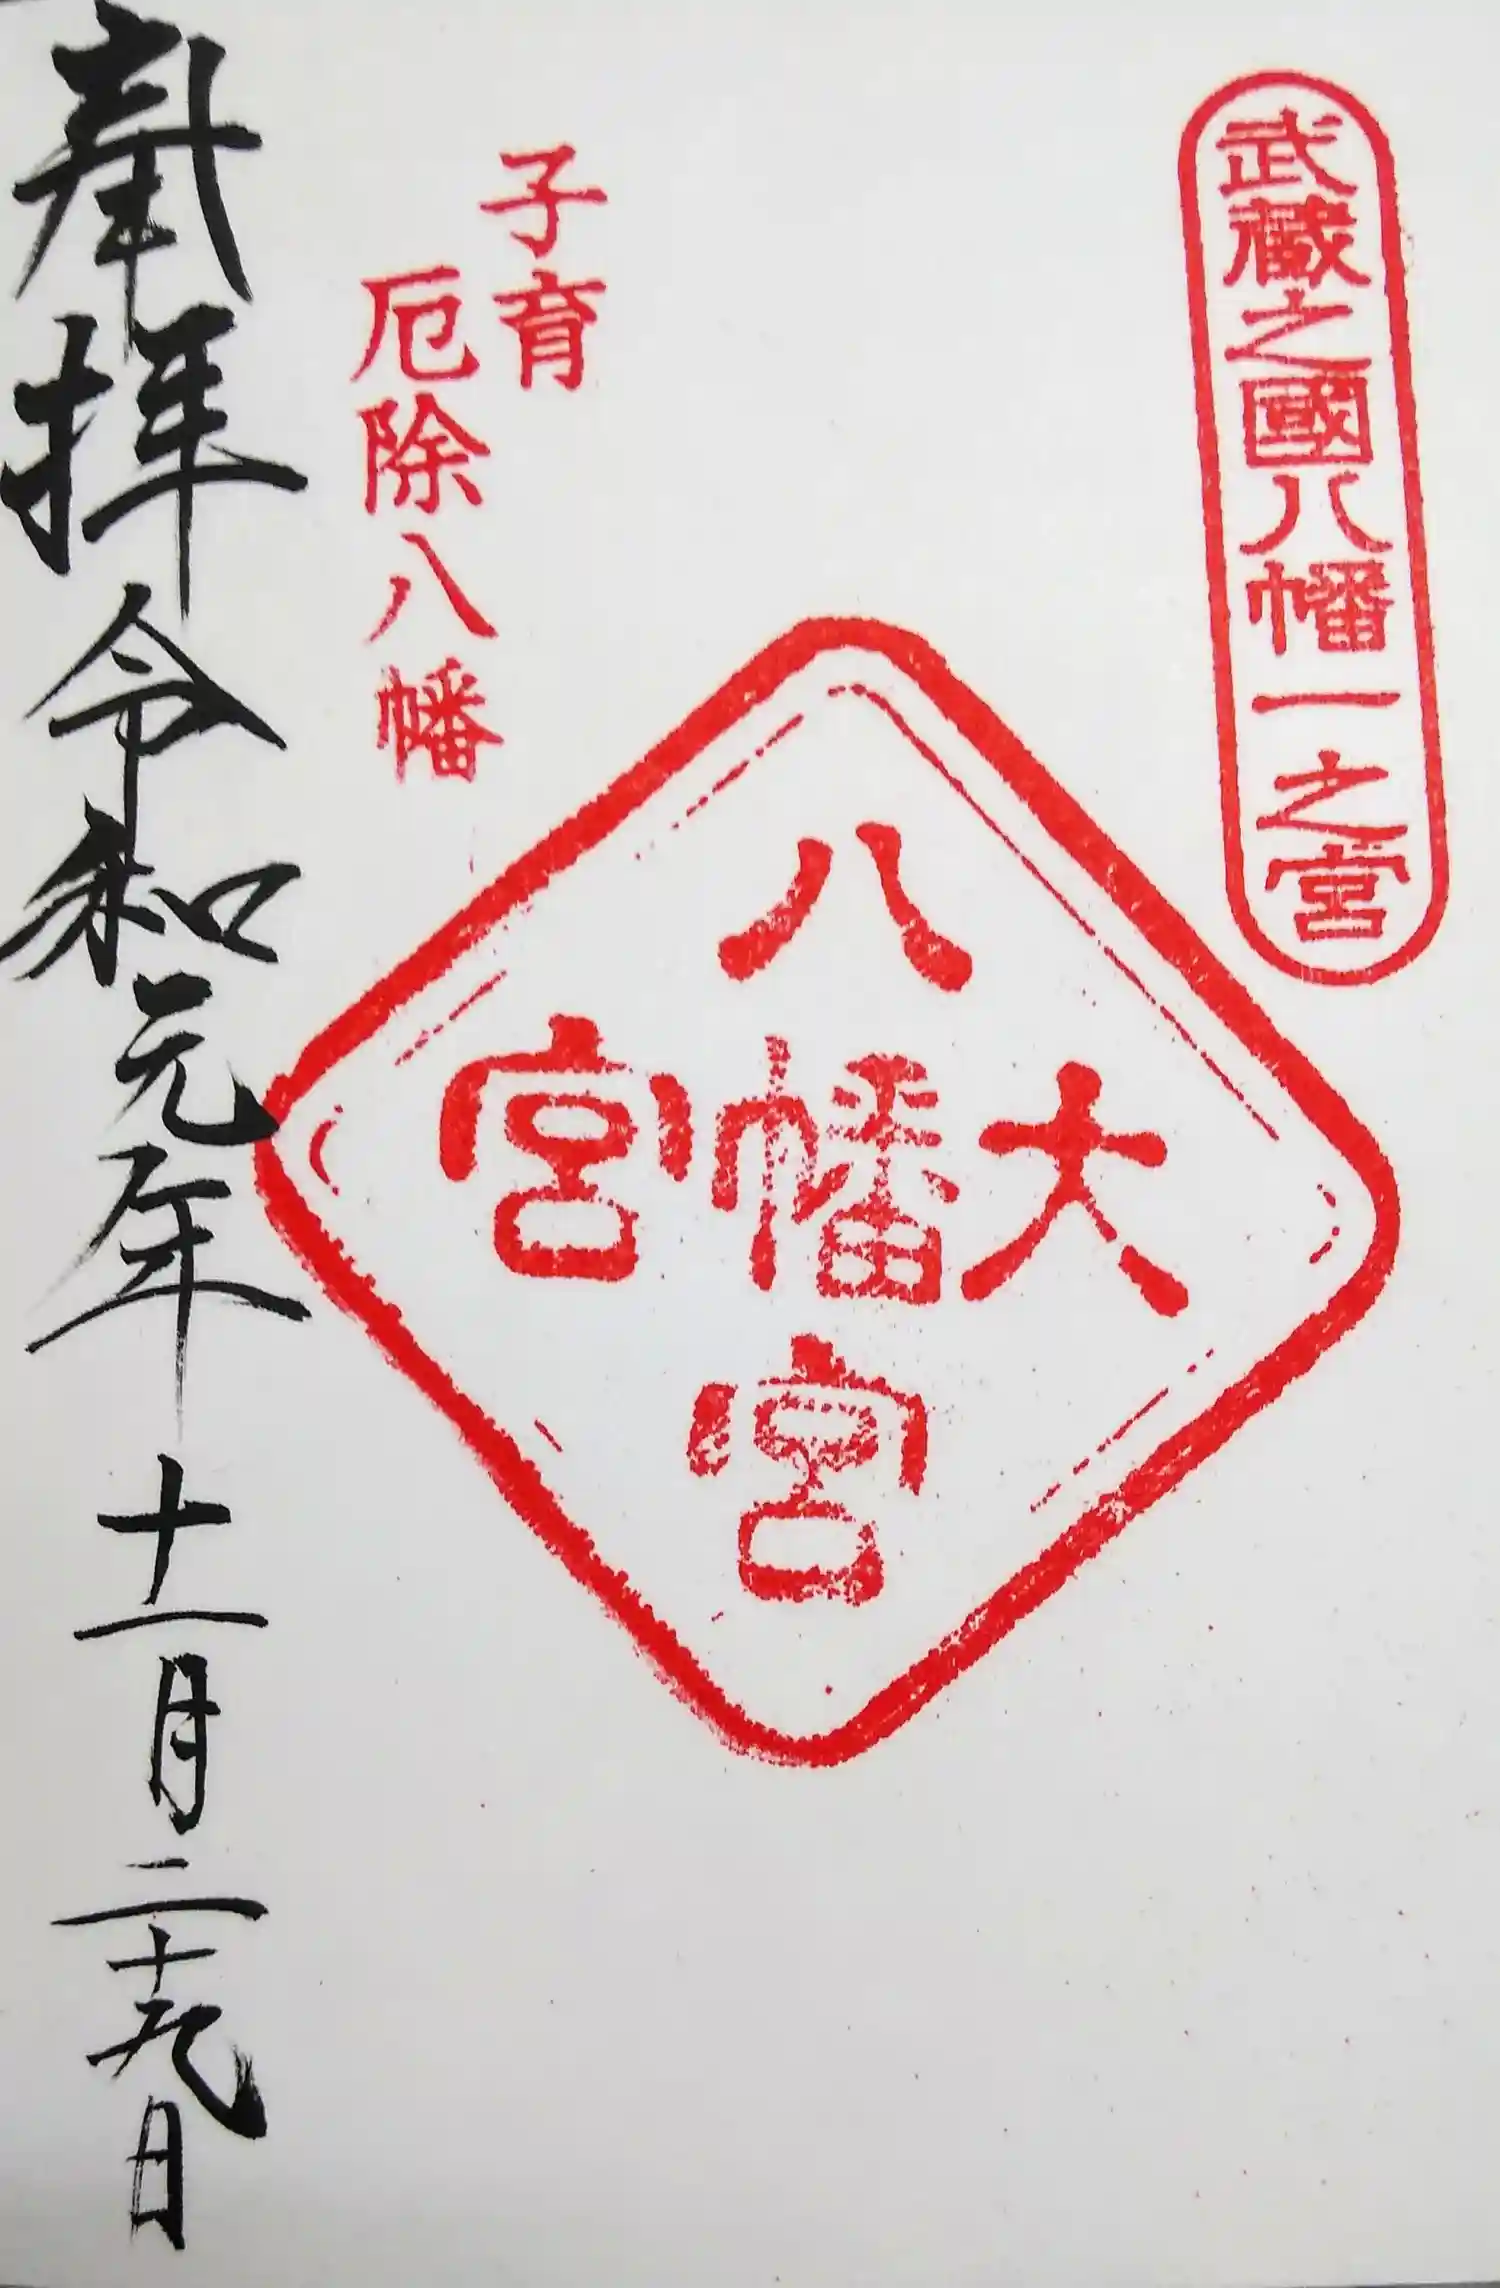 武蔵之國八幡一之宮
八幡宮
大宮
子育
厄除八幡
奉拝令和元年十一月二十九日